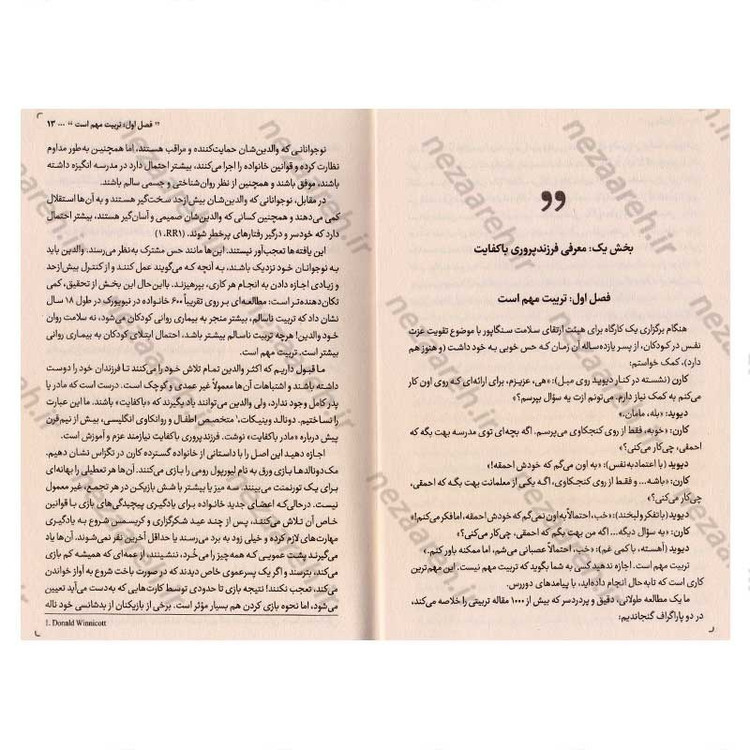 بخش یک: معرفی فرزندپروری باکفایت
فصل اول: تربیت مهم است
هنگام برگزاری یک کارگاه برای هیئت ارتقای سلامت سنگاپور با موضوع تقویت عزت
نفس در کودکان، از پسر یازده‌ساله آن زمان که حس خوبی به خود داشت (و هنوز هم
دارد)، کمک خواستم:
کارن (نشسته در کنار دیوید روی مبل): «هی، عزیزم، برای ارائه‌ای که روی اون کار
می‌کنم به کمک نیاز دارم. می‌تونم ازت یه سؤال بپرسم؟»
دیوید: «بله، مامان.»
کارن: «خوبه، فقط از روی کنجکاوی می‌پرسم. اگه بچه‌ای توی مدرسه بهت بگه که
احمقی، چی‌کار می‌کنی؟»
دیوید (با اعتمادبه‌نفس): «به اون می‌گم که خودش احمقه!»
کارن: «باشه... و فقط از روی کنجکاوی، اگه یکی از معلمانت بهت بگه که احمقی،
چی‌کار می‌کنی؟»
دیوید (با تفکر و لبخند): «خب، احتمالاً به اون نمی‌گم که خودش احمقه، اما فکر می‌کنم!»
کارن: «یه سؤال دیگه... اگه من بهت بگم که احمقی، چی‌کار می‌کنی؟»
دیوید (آهسته، با کمی غم): «خب، احتمالاً عصبانی می‌شم، اما ممکنه باور کنم.»
تربیت مهم است. اجازه ندهید کسی به شما بگوید که تربیت مهم نیست. این مهم‌ترین
کاری است که تابه‌حال انجام داده‌اید، با پیامدهای دوررس.
ما یک مطالعه طولانی، دقیق و پردردسر که بیش از ۱۰۰۰ مقاله تربیتی را خلاصه می‌کند،
در دو پاراگراف گنجاندیم:
" فصل اول: تربیت مهم است " ... ۱۳
نوجوانانی که والدین‌شان حمایت‌کننده و مراقب هستند، اما همچنین به‌طور مداوم
نظارت کرده و قوانین خانواده را اجرا می‌کنند، بیشتر احتمال دارد در مدرسه انگیزه داشته
باشند، موفق باشند و همچنین از نظر روان‌شناختی و جسمی سالم باشند.
در مقابل، نوجوانانی که والدین‌شان بیش‌ازحد سخت‌گیر هستند و به آن‌ها استقلال
کمی می‌دهند و همچنین کسانی که والدین‌شان صمیمی و آسان‌گیر هستند، بیشتر احتمال
دارد که خودسر و درگیر رفتارهای پرخطر شوند. (۱،RR۱)
این یافته‌ها تعجب‌آور نیستند. این‌ها مانند حس مشترک به‌نظر می‌رسند. والدین باید
به نوجوانان خود نزدیک باشند، به آنچه که می‌گویند عمل کنند و از کنترل بیش‌ازحد
و زیادی اجازه دادن به انجام هر کاری، بپرهیزند. بااین‌حال این بخش از تحقیق، کمی
تکان‌دهنده‌تر است: مطالعه‌ای بر روی تقریباً ۶۰۰ خانواده در نیویورک در طول ۱۸ سال
نشان داد که تربیت ناسالم، بیشتر منجر به بیماری روانی کودکان می‌شود، نه سلامت روان
خود والدین! هرچه تربیت ناسالم بیشتر باشد، احتمال ابتلای کودکان به بیماری روانی
بیشتر است. تربیت مهم است.
ما قبول داریم که اکثر والدین تمام تلاش خود را می‌کنند تا فرزندان خود را دوست
داشته باشند و اشتباهات آن‌ها معمولاً غیر عمدی و کوچک است. درست است که مادر یا
پدر کامل وجود ندارد، ولی والدین می‌توانند یاد بگیرند که «باکفایت» باشند. ما این عبارت
را نساختیم. دونالد وینیکات،۱ متخصص اطفال و روانکاوی انگلیسی، بیش از نیم‌قرن
پیش درباره «مادر باکفایت» نوشت. فرزندپروری باکفایت نیازمند عزم و آموزش است.
اجازه دهید این اصل را با داستانی از خانواده گسترده کارن در تگزاس نشان دهیم.
مک‌دونالدها بازی ورق به نام لیورپول رومی را بازی می‌کنند. آن‌ها هر تعطیلی را بهانه‌ای
برای یک تورنمنت می‌بینند. سه میز یا بیشتر با شش بازیکن در هر تجمع، غیر معمول
نیست. درحالی‌که اعضای جدید خانواده برای یادگیری پیچیدگی‌های بازی با قوانین
خاص آن تلاش می‌کنند، پس از چند عید شکرگزاری و کریسمس شروع به یادگیری
مهارت‌های لازم کرده و خیلی زود به برد می‌رسند یا حداقل آخرین نفر نمی‌شوند. آن‌ها یاد
می‌گیرند پشت عمویی که همه‌چیز را می‌خُرد، ننشینند، از عمه‌ای که همیشه کم بازی
می‌کند، بترسند و اگر یک پسرعموی خاص دیدند که در صورت باخت شروع به آواز خواندن
می‌کند، تعجب نکنند! نتیجه بازی تا حدودی توسط کارت‌هایی که به‌دست می‌آید تعیین
می‌شود، اما نحوه بازی کردن هم بسیار مؤثر است. برخی از بازیکنان از بدشانسی خود ناله
1. Donald Winnicott
nezaareh.ir